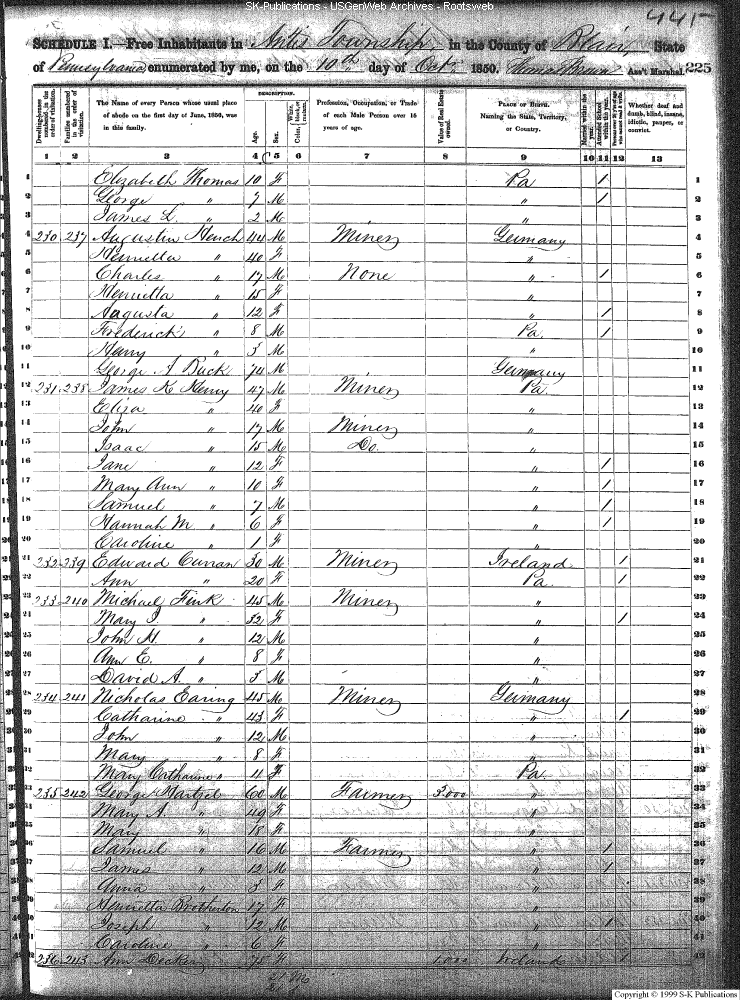 SK-Publications - USGenWeb Archives - Rootsweb
445
SCHEDULE I.—Free Inhabitants in Antis Township, in the County of Blair, State
of Pennsylvania enumerated by me, on the 10th day of Oct. 1850. Thomas Ass't Marshal. 225
Dwelling-houses numbered, in the order of visitation.
Families numbered in the order of visitation.
The Name of every Person whose usual place of abode on the first day of June, 1850, was in this family.
DESCRIPTION.
Age.
Sex.
White, black, or mulatto.
Color,
Profession, Occupation, or Trade of each Male Person over 15 years of age.
Value of Real Estate owned.
PLACE OF BIRTH. Naming the State, Territory, or Country.
Married within the year.
Attended School within the year.
Persons over 20 y'rs of age who cannot read & write.
Whether deaf and dumb, blind, insane, idiotic, pauper, or convict.
1 2 3 4 5 6 7 8 9 10 11 12 13
1 Elizabeth Thomas 10 F Pa / 1
2 George " 7 M " / 2
3 James L. " 2 M " 3
4 230 237 Augustin Hench 44 M Miner Germany 4
5 Henrietta " 40 F " 5
6 Charles " 17 M None " / 6
7 Henrietta " 15 F " 7
8 Augusta " 12 F " / 8
9 Frederick " 8 M Pa. / 9
10 Harry " 3 M " 10
11 George A Buck 74 M Germany 11
12 231 238 James K Henry 47 M Miner Pa. 12
13 Eliza " 40 F " 13
14 John " 17 M Miner " 14
15 Isaac " 15 M Do. " 15
16 Jane " 12 F " / 16
17 Mary Ann " 10 F " / 17
18 Samuel " 7 M " / 18
19 Hannah M " 6 F " / 19
20 Caroline " 1 F " 20
21 232 239 Edward Curran 30 M Miner Ireland / 21
22 Ann " 20 F Pa. / 22
23 233 240 Michael Fink 45 M Miner " 23
24 Mary J. " 32 F " / 24
25 John H. " 12 M " 25
26 Ann E. " 8 F " 26
27 David A. " 3 M " 27
28 234 241 Nicholas Earing 45 M Miner Germany 28
29 Catharine " 43 F " / 29
30 John " 12 M " 30
31 Mary " 8 F " 31
32 Mary Catharine " 4 F Pa. 32
33 235 242 George Hartzel 60 M Farmer 3000 " 33
34 Mary A. " 49 F " 34
35 Mary " 18 F " 35
36 Samuel " 16 M Farmer " / 36
37 James " 12 M " / 37
38 Anna " 3 F " 38
39 Henrietta Brotherton 17 F " 39
40 Joseph " 12 M " / 40
41 Caroline " 6 F " 41
42 236 243 Ann 75 F 1000 Ireland / 42
Copyright © 1999 S-K Publications